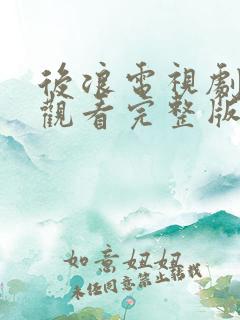 後浪電視劇
觀看完整版
如意妞妞
未经同意禁止转载